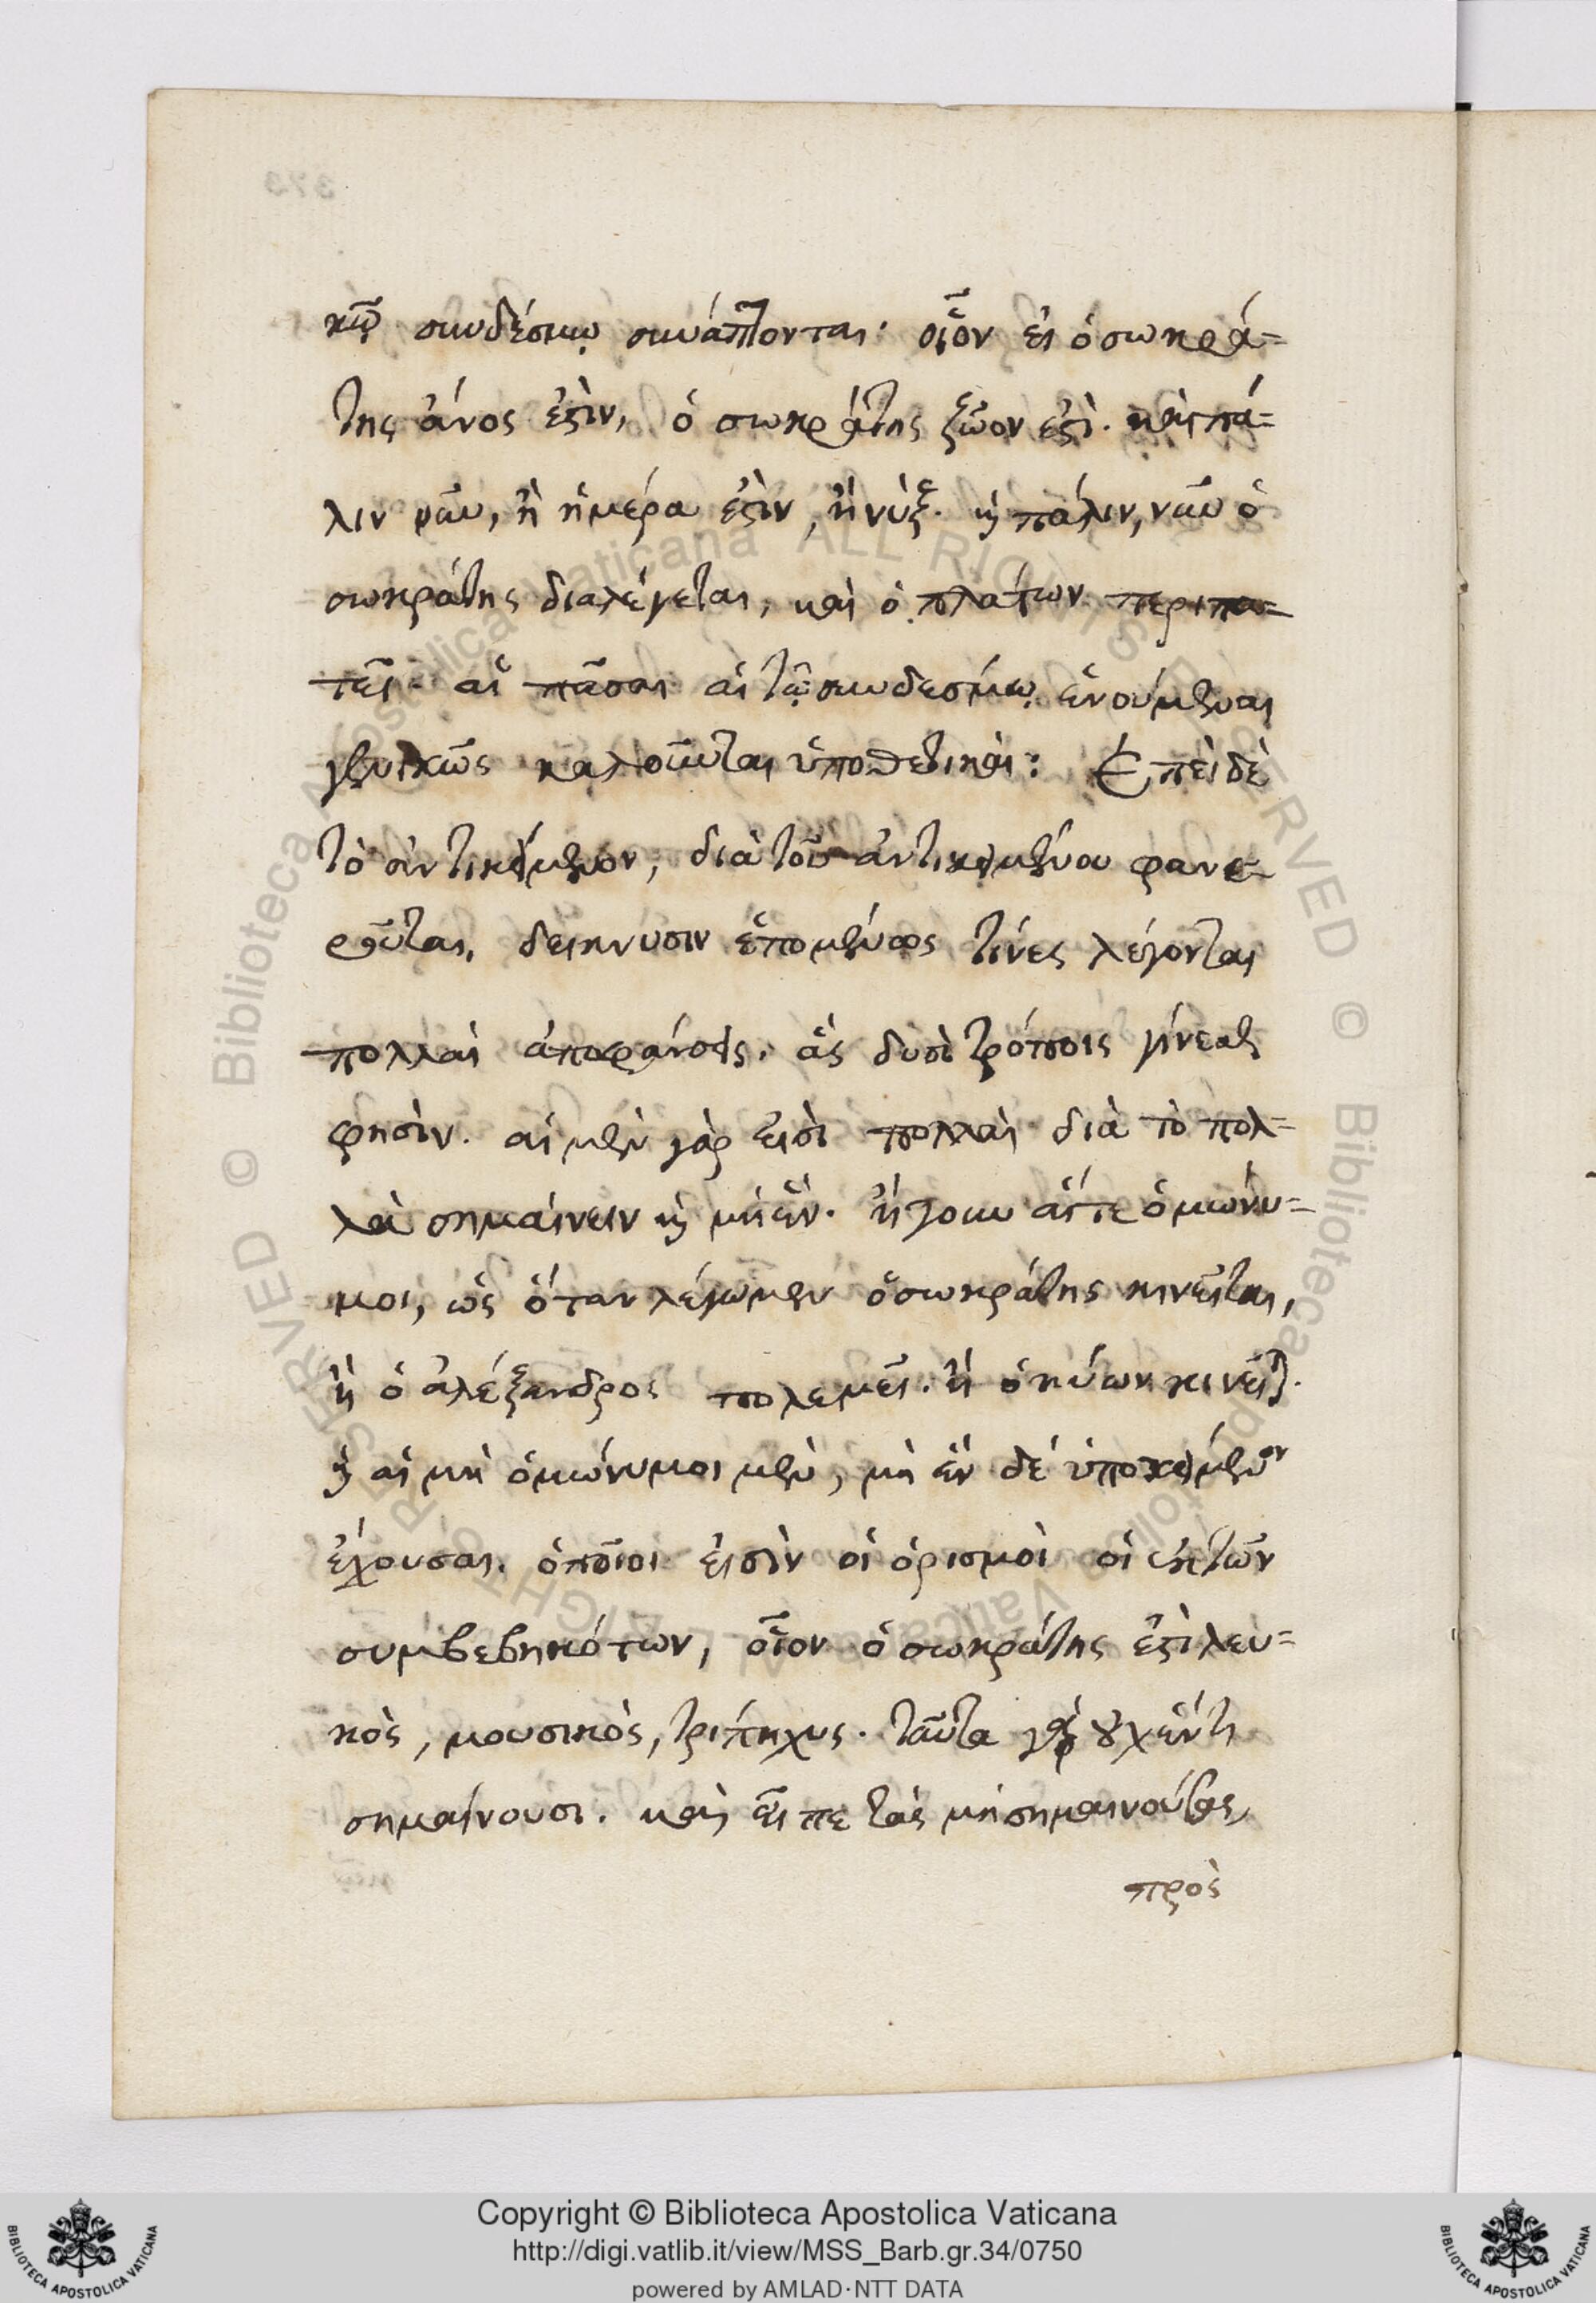 κῷ συνδέσμῳ συνάπτονται· οἷον εἰ ὁ σωκρά=
της ἄνος ἐστὶν, ὁ σωκράτης ζῷον ἐστὶ. καὶ πά=
λιν νῦν, ἢ ἡμέρα ἐστὶν, ἢ νύξ. καὶ πάλιν, νῦν ὁ
σωκράτης διαλέγεται, καὶ ὁ πλάτων περιπα=
τεῖ. αἳ πᾶσαι αἱ τῷ συνδεσμῳ ἑνούμεναι
γενικῶς καλοῦνται ὑποθετικαί: Ἐπεὶ δὲ
τὸ ἀντικείμενον, διὰ τοῦ ἀντικειμένου φανε=
ροῦται, δεικνυσιν ἑπομένως τίνες λέγονται
πολλαὶ ἀποφάνσεις. ἃς δυσὶ τρόποις γίνεσθαι
φησὶν. αἱ μὲν γὰρ εἰσὶ πολλαὶ διὰ τὸ πολ=
λὰ σημαίνειν καὶ μὴ ἓν. ἤγουν αἵτε ὁμώνυ=
μοι, ὡς ὅταν λέγωμεν ὁ σωκράτης κινεῖται,
ἢ ὁ ἀλέξανδρος πολεμεῖ. ἢ ὁ κύων κινεῖται.
καὶ αἱ μὴ ὁμώνυμοι μὲν, μὴ ἓν δέ ὑποκείμενον
ἔχουσαι. ὁποῖοι εἰσὶν οἱ ὁρισμοὶ οἱ ἐκ τῶν
συμβεβηκότων, οἷον ὁ σωκράτης ἐστὶ λευ=
κὸς, μουσικὸς, τρίπηχυς. ταῦτα γὰρ οὐχ ἕν τι
σημαίνουσι. καὶ εἶπε τὰς μὴ σημαινούσας,
πρὸς
Copyright © Biblioteca Apostolica Vaticana
http://digi.vatlib.it/view/MSS_Barb.gr.34/0750
powered by AMLAD·NTT DATA